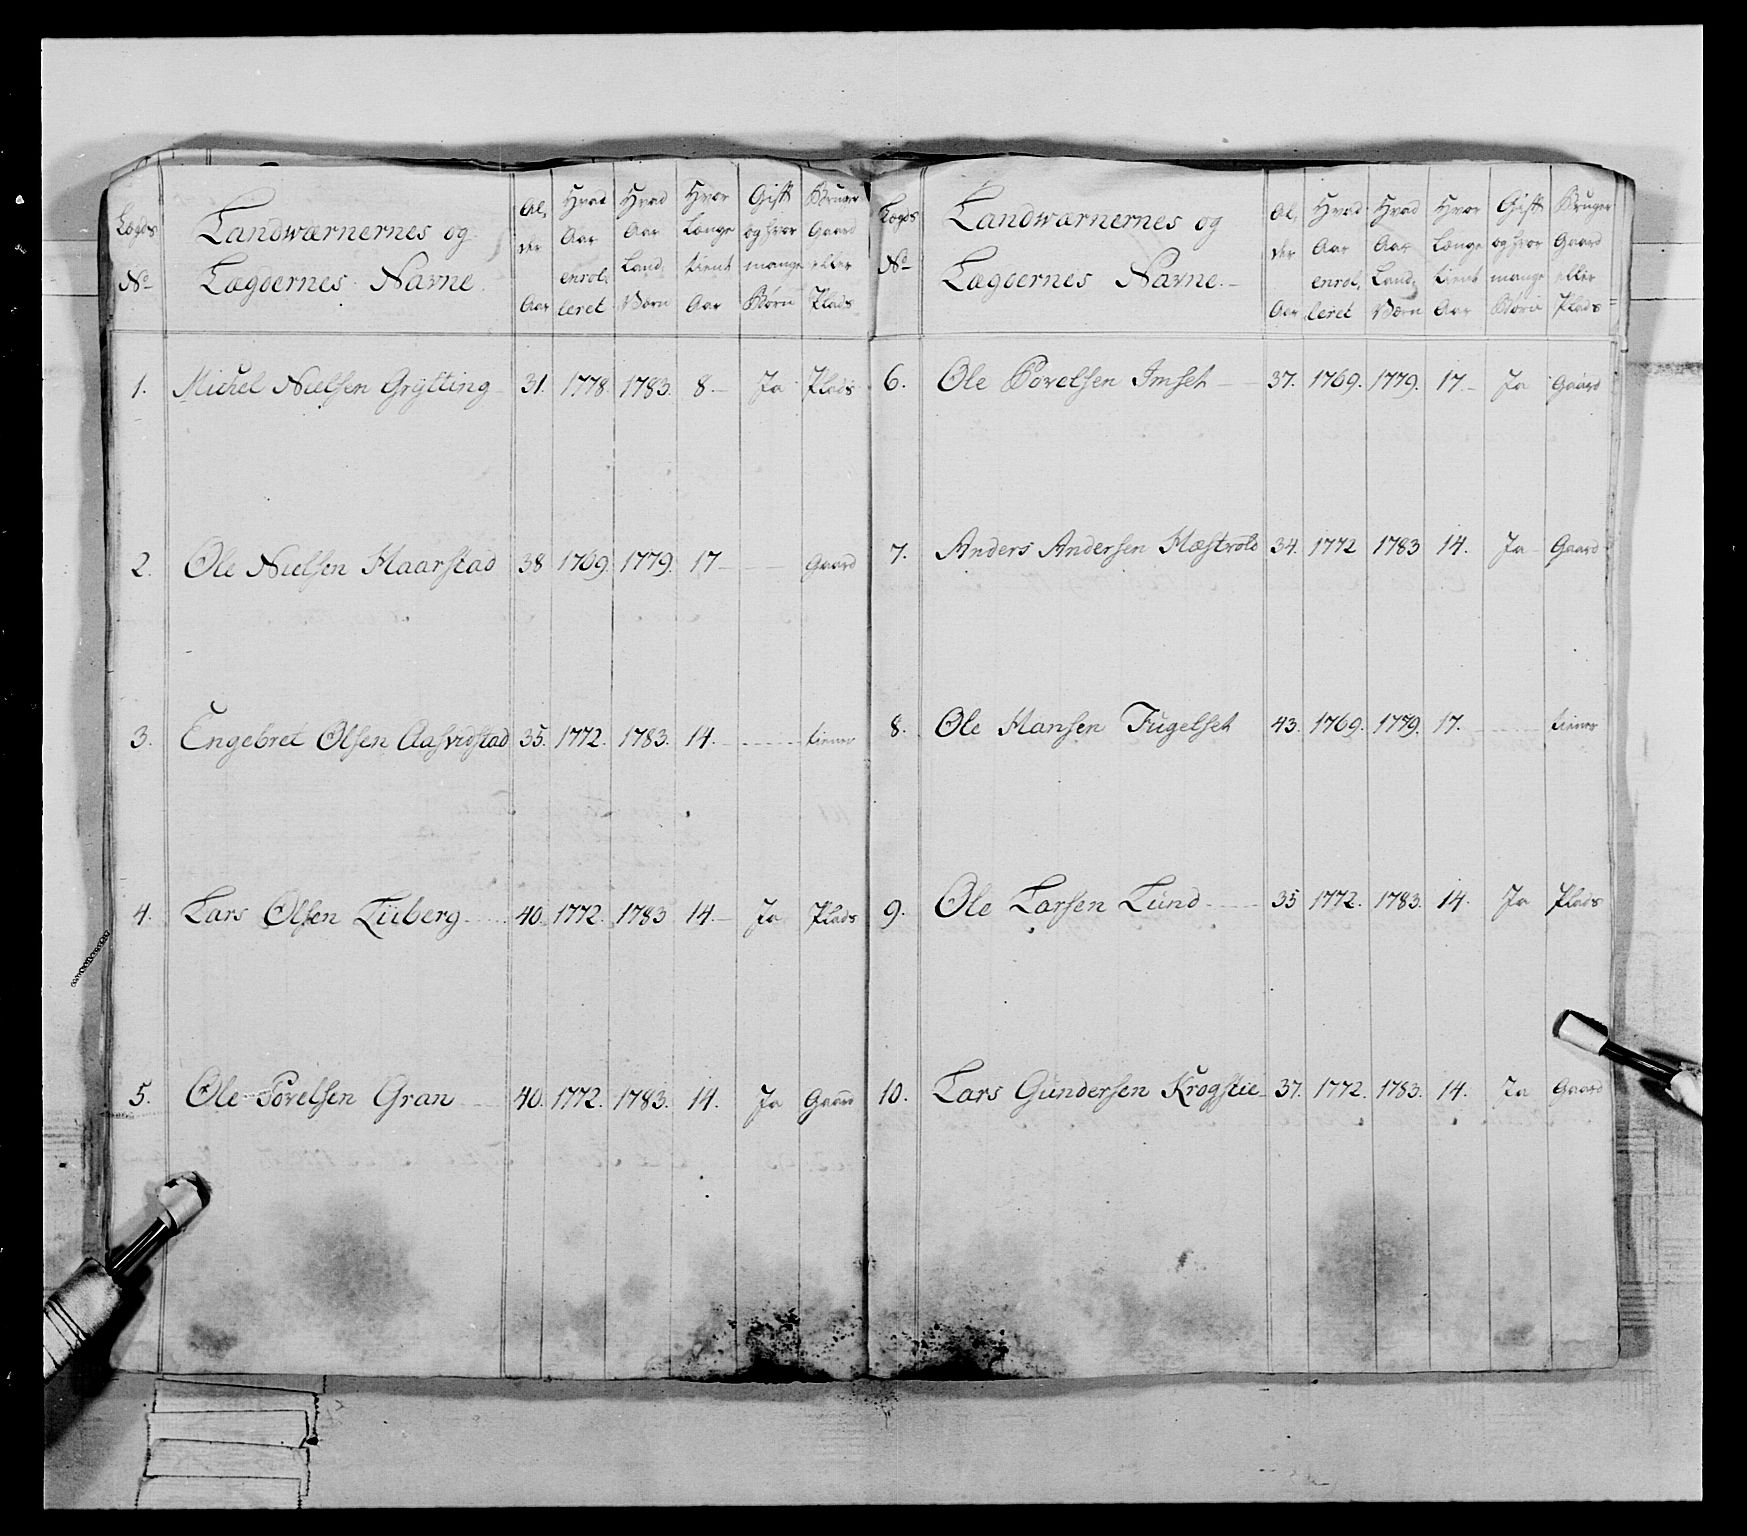 Lægds No
Landwærnernes og
Lægdernes Navne.
Al,der Aar
Hvad Aar enrol,leret
Hvad Aar Land,Værn
Hvor Længe tient Aar
Gift og hvor mange Børn
Bruger Gaard eller Plads
1. Michel Nielsen Grytting 31. 1778. 1783. 8. Ja Plads
2. Ole Nielsen Haarstad 38 1769. 1779. 17 Gaard
3. Engebret Olsen 35. 1772. 1783. 14. tiener
4. Lars Olsen Liuberg 40. 1772. 1783 14. Ja Plads
5. Ole Povelsen Gran 40. 1772. 1783. 14. Ja Gaard
Lægds No
Landwærnernes og
Lægdernes Navne.
Al,der Aar
Hvad Aar enrol,leret
Hvad Aar Land,Værn
Hvor Længe tient Aar
Gift og hvor mange Børn
Bruger Gaard eller Plads
6. Ole Povelsen Imset 37. 1769. 1779. 17 Ja Gaard
7. Anders Andersen 34. 1772 1783 14. Ja Gaard
8. Ole Hansen Fugelset 43. 1769. 1779. 17. tiener
9. Ole Larsen Lund 35 1772. 1783. 14. Ja Plads
10. Lars Gundersen Krogstie 37. 1772. 1783. 14. Ja Gaard